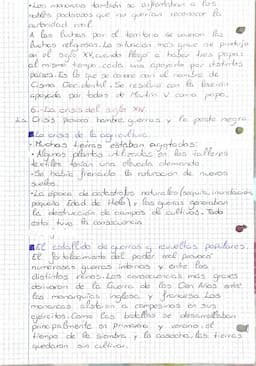 •Los monarcas también se enfrentaban a los
nobles poderosos que no querían reconocer la
autoridad real.
A las luchas por el territorio se unieron las
luchas religiosas. La situación más grave se produjo
en el siglo XV, cuando llegó a haber tres papas
al mismo tiempo, cada uno apoyado por distintos
países. Es lo que se conoce con el nombre de
Cisma Occidental. Se resolvió con la elección
apoyada por todos de Martín V como papa.
6.-La crisis del siglo XIV.
La Crisis provocó hambre, guerras y la peste negra.
La crisis de la agricultura.
•Muchas tierras estaban agotadas:
•Algunas plantas utilizadas en los talleres
textiles tenían una elevada demanda.
•Se había frenado la roturación de nuevos
suelos.
•La época de catástrofes naturales (sequía, inundación,
pequeña Edad de Hielo), y las guerras generaban
la destrucción de campos de cultivos. Todo
esto tuvo la consecuencia
El estallido de guerras y revueltas populares.
El fortalecimiento del poder real provocó
numerosas guerras internas y entre los
distintos reinos. Las consecuencias más graves
derivaron de la Guerra de los Cien Años entre
las monarquías inglesa y francesa. Los
monarcas alistaban a campesinos en sus
ejércitos. Como las batallas se desarrollaban
principalmente en primavera y verano, el
tiempo de la siembra y la cosecha, las tierras
quedaron sin cultivar.